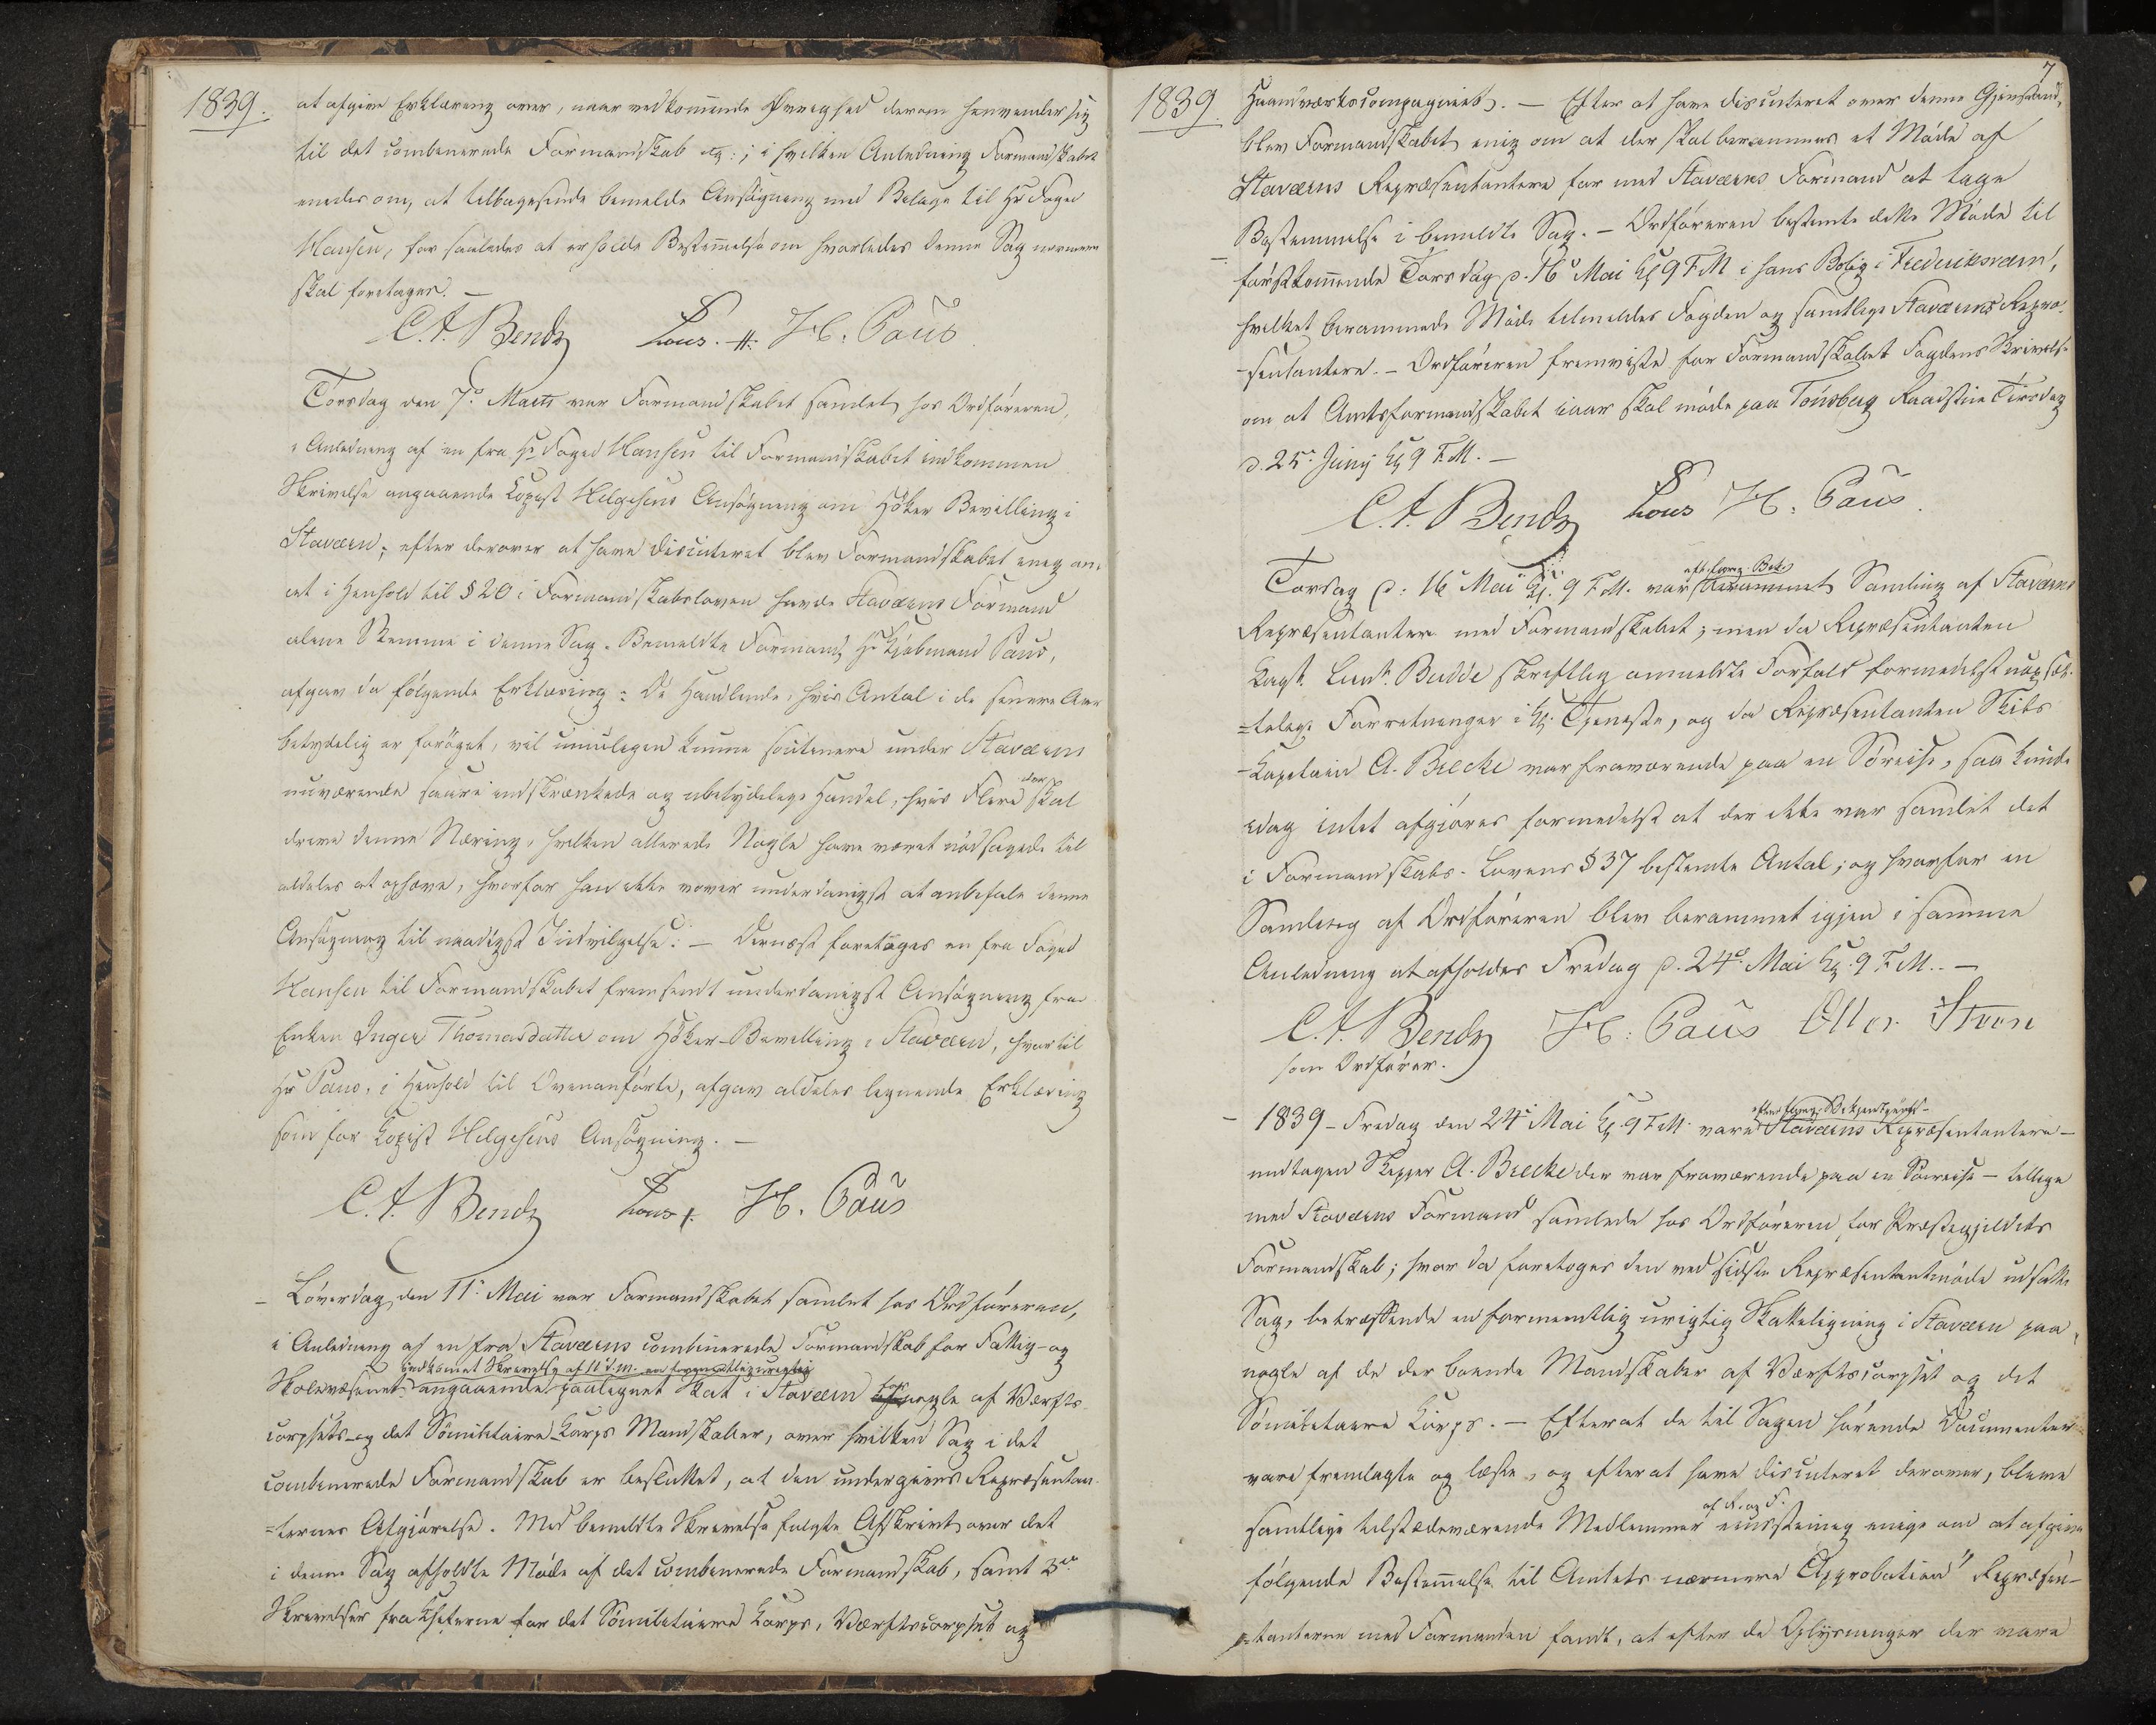 1839.
at afgive Erklæring over, naar vedkommende Øvrighed derom henvender sig
til det combinerede Formandskab og:; i hvilken Anledning Formandskabet
enedes om, at tilbagesende bemeldte Ansøgning med Bilage til Hr Foged
Hansen, for saaledes at erholde Bestemmelse om hvorledes denne Sag nærmere
skal foretages. —
C. A. Bendz H. Paus
Torsdag den 7de Marts var Formandskabet samlet hos Ordføreren,
i Anledning af en fra Hr Foged Hansen til Formandskabet indkommen
Skrivelse angaaende Kopist Helgesens Ansøgning om Høker Bevilling i
Staværn; efter derover at have discuteret blev Formandskabet enig om,
at i Henhold til § 20 i Formandskabsloven havde Staværns Formand
alene Stemme i denne Sag. Bemeldte Formand, Hr Kjøbmand Paus,
afgav da følgende Erklæring: De Handlende, hvis Antal i de senere Aar
betydelig er forøget, vil umulegen kunne soutenere under Staværns
nuværende saare indskrænkede og ubetydelige Handel, hvis Flere der skal
drive denne Næring, hvilken allerede Nogle have været nødsagede til
aldeles at ophæve, hvorfor han ikke vover underdanigst at anbefale denne
Ansøgning til naadigst Indvilgelse. — Dernæst foretoges en fra Foged
Hansen til Formandskabet fremsendt underdanigst Ansøgning fra
Enken Inger Thomasdatter om Høker-Bevilling i Staværn, hvortil
Hr Paus, i Henhold til Ovenanførte, afgav aldeles lignende Erklæring
som for Kopist Helgesens Ansøgning. —
C. A. Bendz H. Paus
— Løverdag den 11te Mai var Formandskabet samlet hos Ordføreren,
i Anledning af en fra Staværns combinerede Formandskab for Fattig- og
indkomet Skrivelse af 11 d. m. en formentlig urigtig
Skolevæsenet angaaende paalignet Skat i Staværn nogle af Værfts-
corpsets og det Sømilitaire Korps Mandskaber, over hvilken Sag i det
combinerede Formandskab er besluttet, at den undergives Repræsentan-
=ternes Afgjørelse. Med bemeldte Skrivelse fulgte Afskrivt over det
i denne Sag afholdte Møde af det combinerede Formandskab, samt 3de
Skrivelser fra Cheferne for det Sømilitaire Korps, Værftscorpset og
7
1839.
Haandværkscompagniet. — Efter at have discuteret over denne Gjenstand,
blev Formandskabet enig om at der skal berammes et Møde af
Staværns Repræsentantere for med Staværns Formand at tage
Bestemmelse i bemeldte Sag. — Ordføreren bestemte dette Møde til
førstkommende Torsdag d. 16de Mai Kl 9 F.M. i hans Bolig i Frederiksværn,
hvilket berammede Møde tilmeldes Fogden og samtlige Staværns Repræ-
-sentantere. — Ordføreren fremviste for Formandskabet Fogdens Skrivelse
om at Amtsformandskabet iaar skal møde paa Tönsberg Raadstue Tirsdag
d. 25de Juny Kl 9 F.M. —
C. A. Bendz H. Paus.
Torsdag d: 16 Mai Kl. 9 F.M. var berammet Samling af Staværns
Repræsentanter med Formandskabet; men da Repræsentanten
Capt. Lieut. Budde skriftlig anmeldte Forfald formedelst uopsæt-
=telige Forretninger i Kgl. Tjeneste, og da Repræsentanten Skibs
-Kapetain A. Brecke var fraværende paa en Søreise, saa kunde
idag intet afgjøres formedelst at der ikke var samlet det
i Formandskabs-Lovens § 37 bestemte Antal; og hvorfor en
Samling af Ordføreren blev berammet igjen i samme
Anledning at afholdes Fredag d. 24de Mai Kl. 9 F.M. —
C. A. Bendz H. Paus
som Ordfører.
— 1839 — Fredag den 24de Mai Kl. 9 F.M. vare Staværns Repræsentantere —
undtagen Skipper A. Brecke der var fraværende paa en Søreise — tillige
med Staværns Formand samlede hos Ordføreren for Præstegjeldets
Formandskab; hvor da foretoges den ved sidste Repræsentantmøde udsatte
Sag, betræffende en formentlig urigtig Skatteligning i Staværn paa
nogle af de der boende Mandskaber af Værftscorpset og det
Sømilitaire Korps. — Efterat de til Sagen hørende Documenter
vare fremlagte og læste, og efterat have discuteret derover, bleve
af R. og F.
samtlige tilstædeværende Medlemmer eensstemig enige om at afgive
følgende Bestemmelse til Amtets nærmere Approbation "Repræsen-
=tanterne med Formanden fandt, at efter de Oplysninger der vare